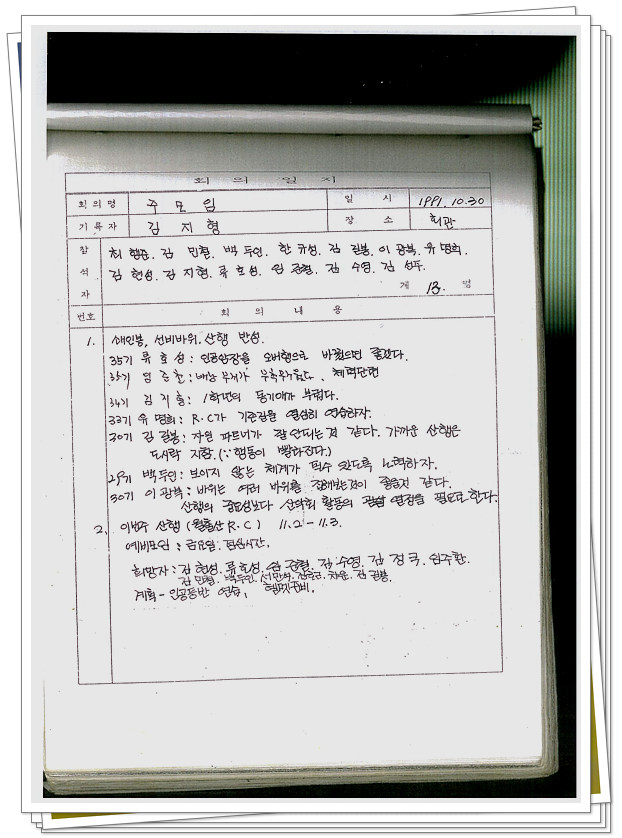 회 의 일 지
회의명 주 모 임 일 시 1991. 10. 30
기록자 김 지 형 장 소 회관
참석자 허 형준. 김 민철. 백 두인. 한 규성. 김 길봉. 이 광복. 유 명희.
김 현성. 김 지형. 류 호성. 임 종철. 김 수영. 김 성두.
계 13. 명
번호 회 의 내 용
1. 선비바위. 산행 반성.
35기 류 호성 : 인공암장을 오버행으로 바꿨으면 좋겠다.
35기 임 종철 : 배낭 무게가 무거웠다. 체력단련
34기 김 지형 : 1학년의 동기애가 부럽다.
33기 유 명희 : R.C가 기준점을 열심히 연습하자.
30기 김 길봉 : 자일 파트너가 잘 안되는것 같다. 가까운 산행은
도시락 지참. (∵ 행동이 빨라진다.)
29기 백 두인 : 보이지 않는 체계가 될수 있도록 노력하자.
30기 이 광복 : 바위는 여러 바위를 접해보는것이 좋을것 같다.
산행의 중요성보다 산악회 활동의 열정을 필요로 한다.
2. 이번주 산행 (월출산 R.C) 11.2 - 11.3.
예비모임 : 금요일. 점심시간.
희망자 : 김 현성. 류 호성. 임 종철. 김 수영. 김 정국. 임주환.
김 민철. 백두인. 김 길봉.
계획 - 인공등반 연습, 햄멧준비.